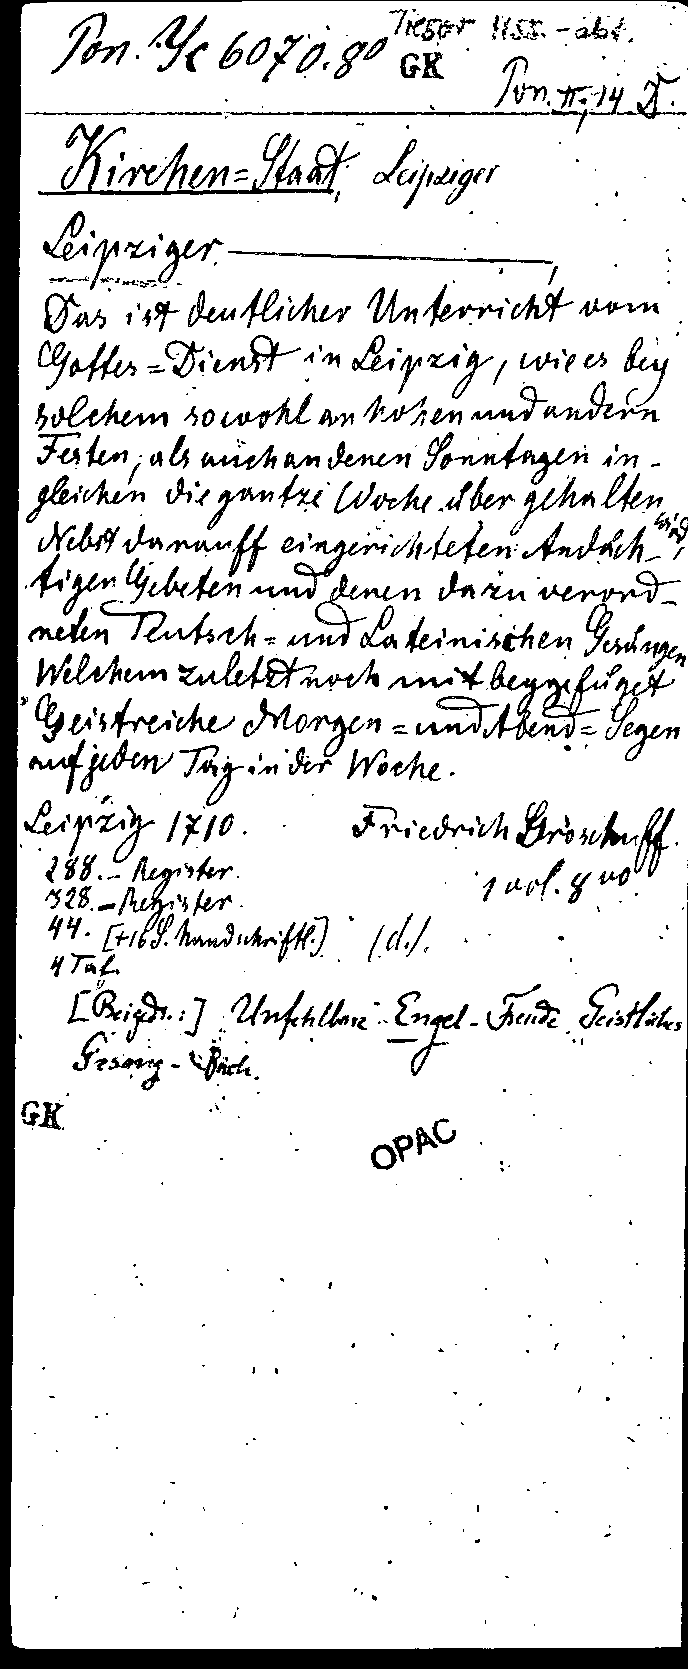 Pon. Yc 6070. 8° Tresor HSS.-abt.
GK
Pon. II, 14 D.
Kirchen=Staat, Leipziger
Leipziger ———,
Das ist deutlicher Unterricht vom
Gottes=Dienst in Leipzig, wie es bey
solchem sowohl an hohen und andern
Festen, als auch an denen Sonntagen in-
gleichen die gantze Woche über gehalten wird,
Nebst darauff eingerichteten Andäch-
tigen Gebeten und denen dazu verord-
neten Teutsch= und Lateinischen Gesängen
Welchem zuletzt noch mit beygefüget
Geistreiche Morgen= und Abend=Segen
auf jeden Tag in der Woche.
Leipzig 1710. Friedrich Groschuff.
288.- Register. 1 vol. 8vo
328.- Register.
44. [+16 S. handschriftl.] (d.).
4 Taf.
[Beigeb.:] Unfehlbare Engel-Freude Geistliches
Gesang-Buch.
GK
OPAC